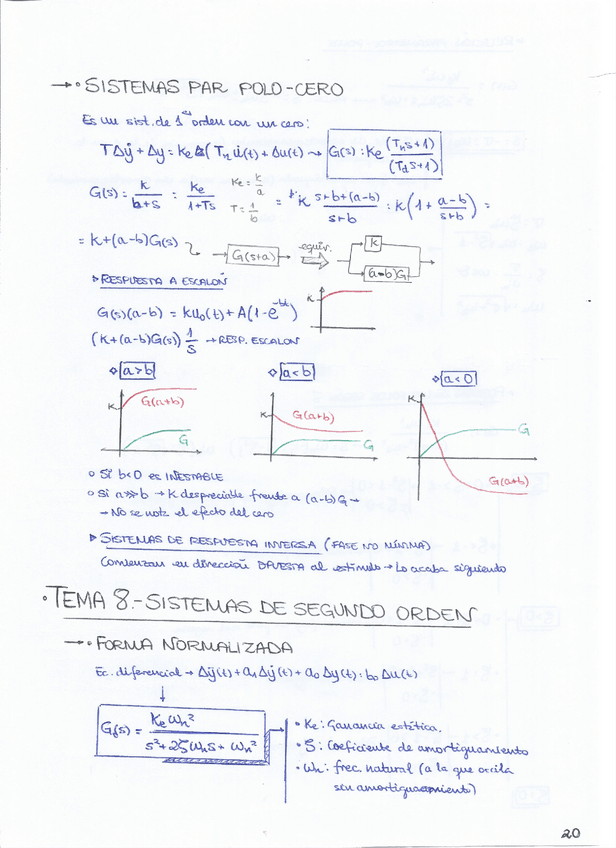 → • SISTEMAS PAR POLO-CERO
Es un sist. de 1er orden con un cero:
TΔẏ + Δy = Ke (Tn u̇(t) + Δu(t) → G(s) : Ke (Tns+1)/(Tds+1)
G(s) : k/(b+s) : Ke/(1+Ts) Ke = k/a T = 1/b = K (s+b+(a-b))/(s+b) : K(1 + (a-b)/(s+b)) =
= K+(a-b)G(s) → G(s+a) → equiv. ⇒ K (a-b)G
▷ RESPUESTA A ESCALON
G(s)(a-b) = Ku₀(t) + A(1-e^-bt) K
(K+(a-b)G(s)) 1/s → RESP. ESCALON
◇ a>b ◇ a<b ◇ a<0
K G(a+b) G K G(a+b) G K G G(a+b)
○ Si b<0 es INESTABLE
○ Si a≫b → K despreciable frente a (a-b)G →
→ No se nota el efecto del cero
▷ SISTEMAS DE RESPUESTA INVERSA (FASE NO MÍNIMA)
Comienzan en dirección OPUESTA al estímulo → Lo acaba siguiendo
• TEMA 8.- SISTEMAS DE SEGUNDO ORDEN
→ • FORMA NORMALIZADA
Ec. diferencial → Δÿ(t) + a₁Δẏ(t) + a₀Δy(t) : b₀Δu(t)
↓
G(s) = Ke ωn² / (s² + 2ζωns + ωn²)
• Ke : Ganancia estática.
• ζ : Coeficiente de amortiguamiento
• ωn : frec. natural (a la que oscila
sin amortiguamiento)
20